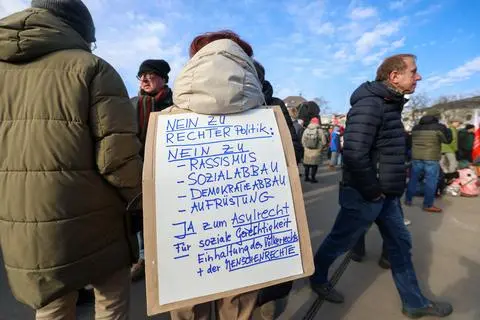 NEIN ZU
RECHTER Politik:
NEIN ZU
- RASSISMUS
- SOZIALABBAU
- DEMOKRATIEABBAU
- AUFRÜSTUNG
JA zum Asylrecht
Für soziale Gerechtigkeit
Einhaltung des Völkerrechts
+ der MENSCHENRECHTE